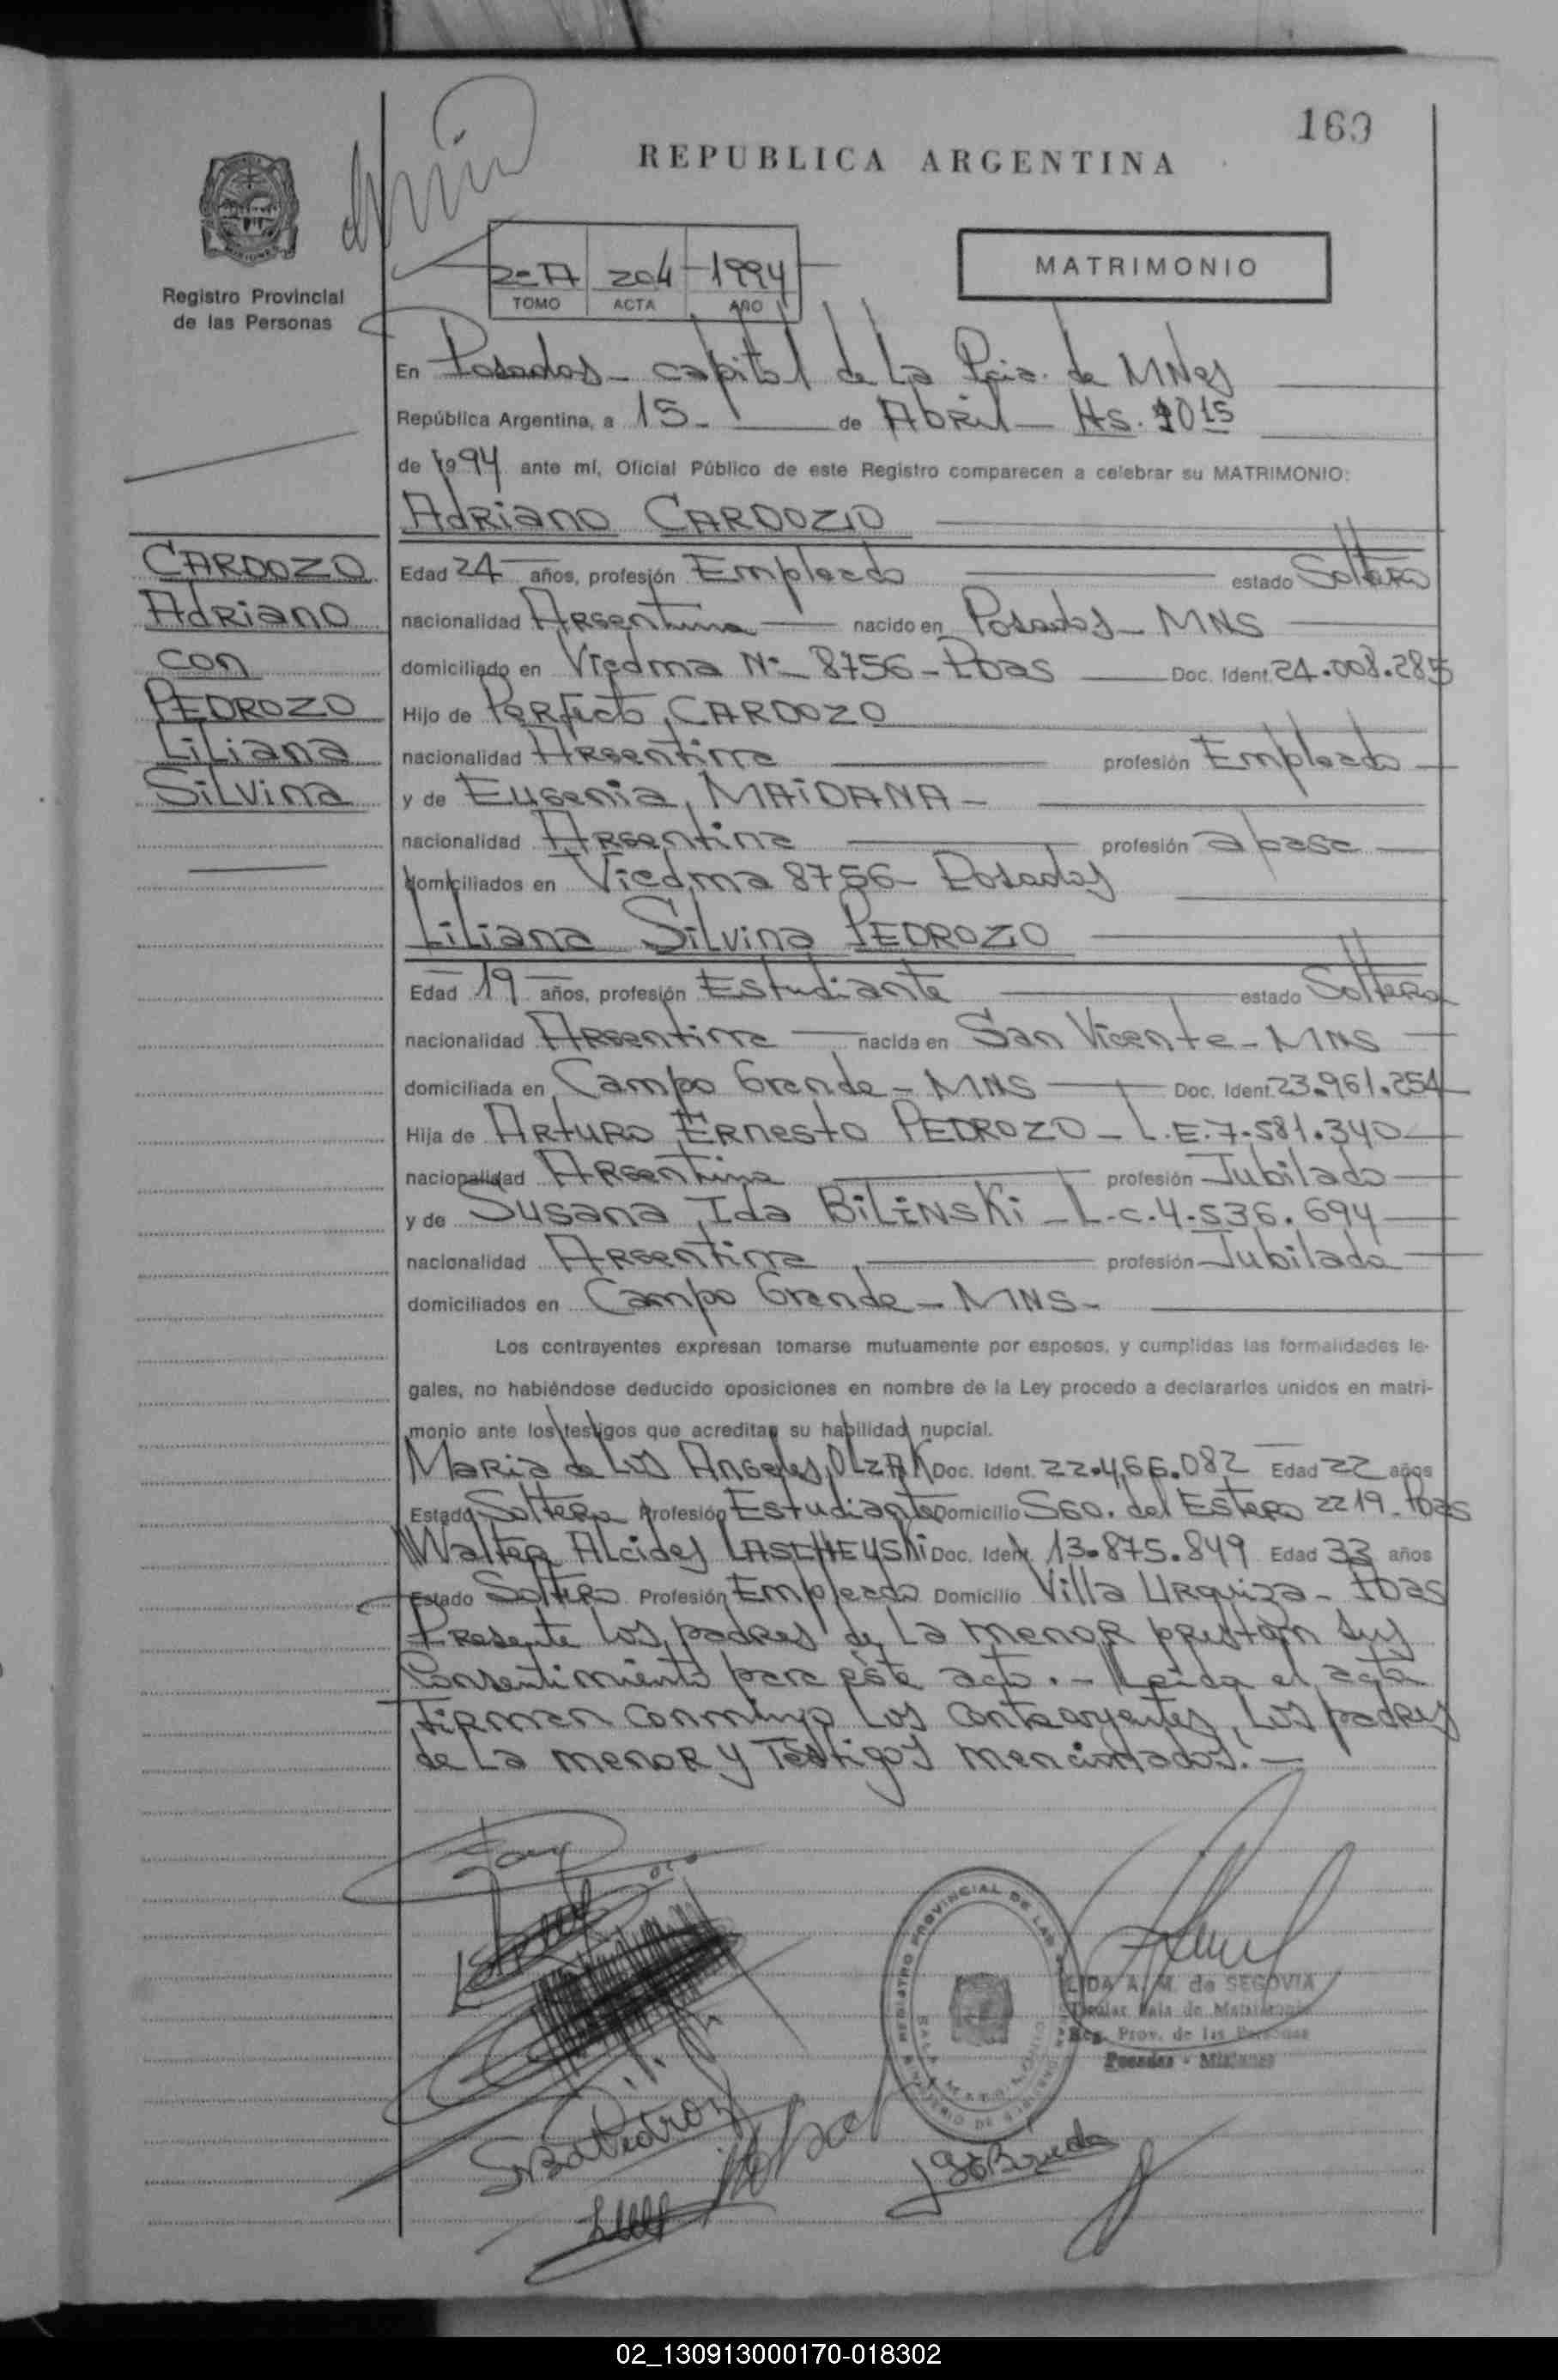 160
REPUBLICA ARGENTINA
Registro Provincial
de las Personas
2=A 204 1994
TOMO ACTA AÑO
MATRIMONIO
En Posadas - capital de La Pcia. de MNes
República Argentina, a 15 - de Abril - Hs. 1015
de 1994 ante mí, Oficial Público de este Registro comparecen a celebrar su MATRIMONIO:
Adriano CARDOZO
CARDOZO
Adriano
con
PEDROZO
Liliana
Silvina
Edad 24 años, profesión Empleado estado Soltero
nacionalidad Argentina nacido en Posadas - MNS
domiciliado en Viedma Nº 8756 - Pdas Doc. Ident. 24.008.285
Hijo de Perfecto, CARDOZO
nacionalidad Argentina profesión Empleado
y de Eugenia, MAIDANA -
nacionalidad Argentina profesión a/casa
domiciliados en Viedma 8756 - Posadas
Liliana Silvina PEDROZO
Edad 19 años, profesión Estudiante estado Soltera
nacionalidad Argentina nacida en San Vicente - MNS
domiciliada en Campo Grande - MNS Doc. Ident. 23.961.254
Hija de Arturo Ernesto PEDROZO - L.E. 7.581.340
nacionalidad Argentina profesión Jubilado
y de Susana Ida BiLiNSKi - L.C. 4.536.694
nacionalidad Argentina profesión Jubilada
domiciliados en Campo Grande - MNS -
Los contrayentes expresan tomarse mutuamente por esposos, y cumplidas las formalidades le-
gales, no habiéndose deducido oposiciones en nombre de la Ley procedo a declararlos unidos en matri-
monio ante los testigos que acreditan su habilidad nupcial.
Maria de Los Angeles, OLZAK Doc. Ident. 22.466.082 Edad 22 años
Estado Soltera Profesión Estudiante Domicilio Sgo. del Estero 2219 - Pdas
Walter Alcides LASCHEUSKi Doc. Ident. 13.875.849 Edad 33 años
Estado Soltero Profesión Empleado Domicilio Villa Urquiza - Pdas
Presente Los padres de La menor prestan sus
Consentimiento para este acto. - Leida el acta
Firman conmigo Los contrayentes, Los padres
de La menor y Testigos mencionados. -
REGISTRO PROVINCIAL DE LAS PERSONAS
LIDA A. M. de SEGOVIA
Titular Sala de Matrimonio
Reg. Prov. de las Personas
Posadas - Misiones
02_130913000170-018302